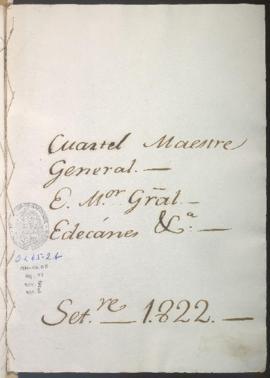 Cuartel Maestre
General.—
E. M.or Gral.—
Edecánes &.a—
O.L. 65-26
Set.re — 1.822.—